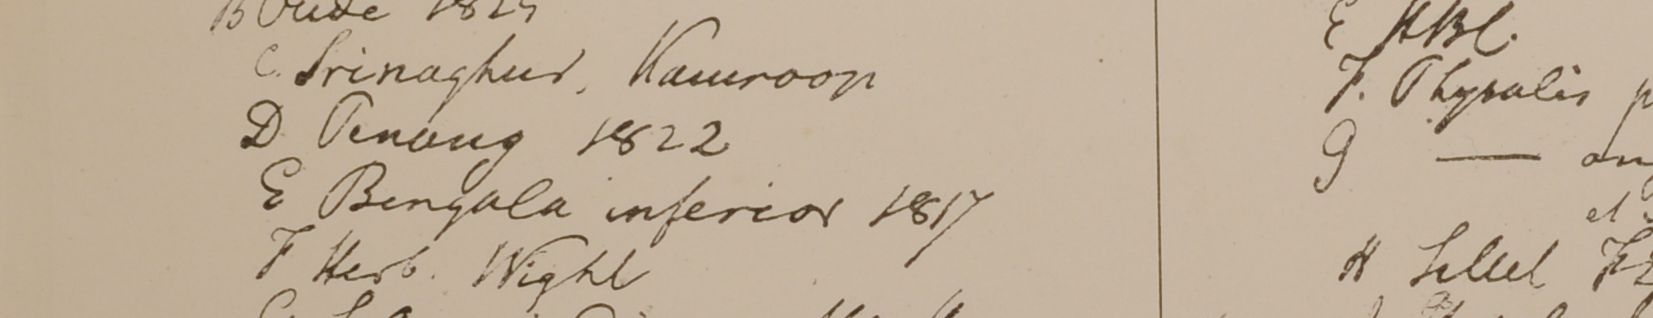 B Oude 1825
C. Srinaghur, Kamroop
D Penang 1822
E Bengala inferior 1817
F Herb. Wight
E HBC.
F. Physalis
G —
et
H